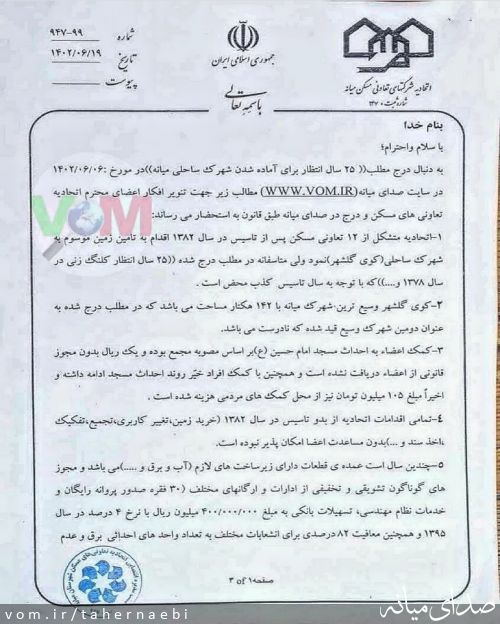 شماره ۹۴۷-۹۹
تاریخ ۱۴۰۲/۰۶/۱۹
پیوست
جمهوری اسلامی ایران
باسمه تعالی
اتحادیه شرکتهای تعاونی مسکن میانه
شماره ثبت: ۱۳۷۰
بنام خدا
با سلام واحترام؛
به دنبال درج مطلب(( ۲۵ سال انتظار برای آماده شدن شهرک ساحلی میانه))در مورخ :۱۴۰۲/۰۶/۰۶
در سایت صدای میانه(WWW.VOM.IR) مطالب زیر جهت تنویر افکار اعضای محترم اتحادیه
تعاونی های مسکن و درج در صدای میانه طبق قانون به استحضار می رساند:
۱-اتحادیه متشکل از ۱۲ تعاونی مسکن پس از تاسیس در سال ۱۳۸۲ اقدام به تامین زمین موسوم به
شهرک ساحلی(کوی گلشهر)نمود ولی متاسفانه در مطلب درج شده ((۲۵ سال انتظار کلنگ زنی در
سال ۱۳۷۸ و....))که با توجه به سال تاسیس کذب محض است .
۲-کوی گلشهر وسیع ترین شهرک میانه با ۱۴۲ هکتار مساحت می باشد که در مطلب درج شده به
عنوان دومین شهرک وسیع قید شده که نادرست می باشد.
۳-کمک اعضاء به احداث مسجد امام حسین (ع)بر اساس مصوبه مجمع بوده و یک ریال بدون مجوز
قانونی از اعضاء دریافت نشده است و همچنین با کمک افراد خیّر روند احداث مسجد ادامه داشته و
اخیراً مبلغ ۱۰۵ میلیون تومان نیز از محل کمک های مردمی هزینه شده است .
۴-تمامی اقدامات اتحادیه از بدو تاسیس در سال ۱۳۸۲ (خرید زمین،تغییر کاربری،تجمیع،تفکیک
،اخذ سند و ...)بدون مساعدت اعضا امکان پذیر نبوده است.
۵-چندین سال است عمده ی قطعات دارای زیرساخت های لازم (آب و برق و .....)می باشد و مجوز
های گوناگون تشویقی و تخفیفی از ادارات و ارگانهای مختلف (۳۰ فقره صدور پروانه رایگان و
خدمات نظام مهندسی، تسهیلات بانکی به مبلغ ۴۰۰/۰۰۰/۰۰۰ میلیون ریال با نرخ ۴ درصد در سال
۱۳۹۵ و همچنین معافیت ۸۲ درصدی برای انشعابات مختلف به تعداد واحد های احداثی برق و عدم
صفحه۱ of ۳
VOM
vom.ir/tahernaebi
صدای میانه